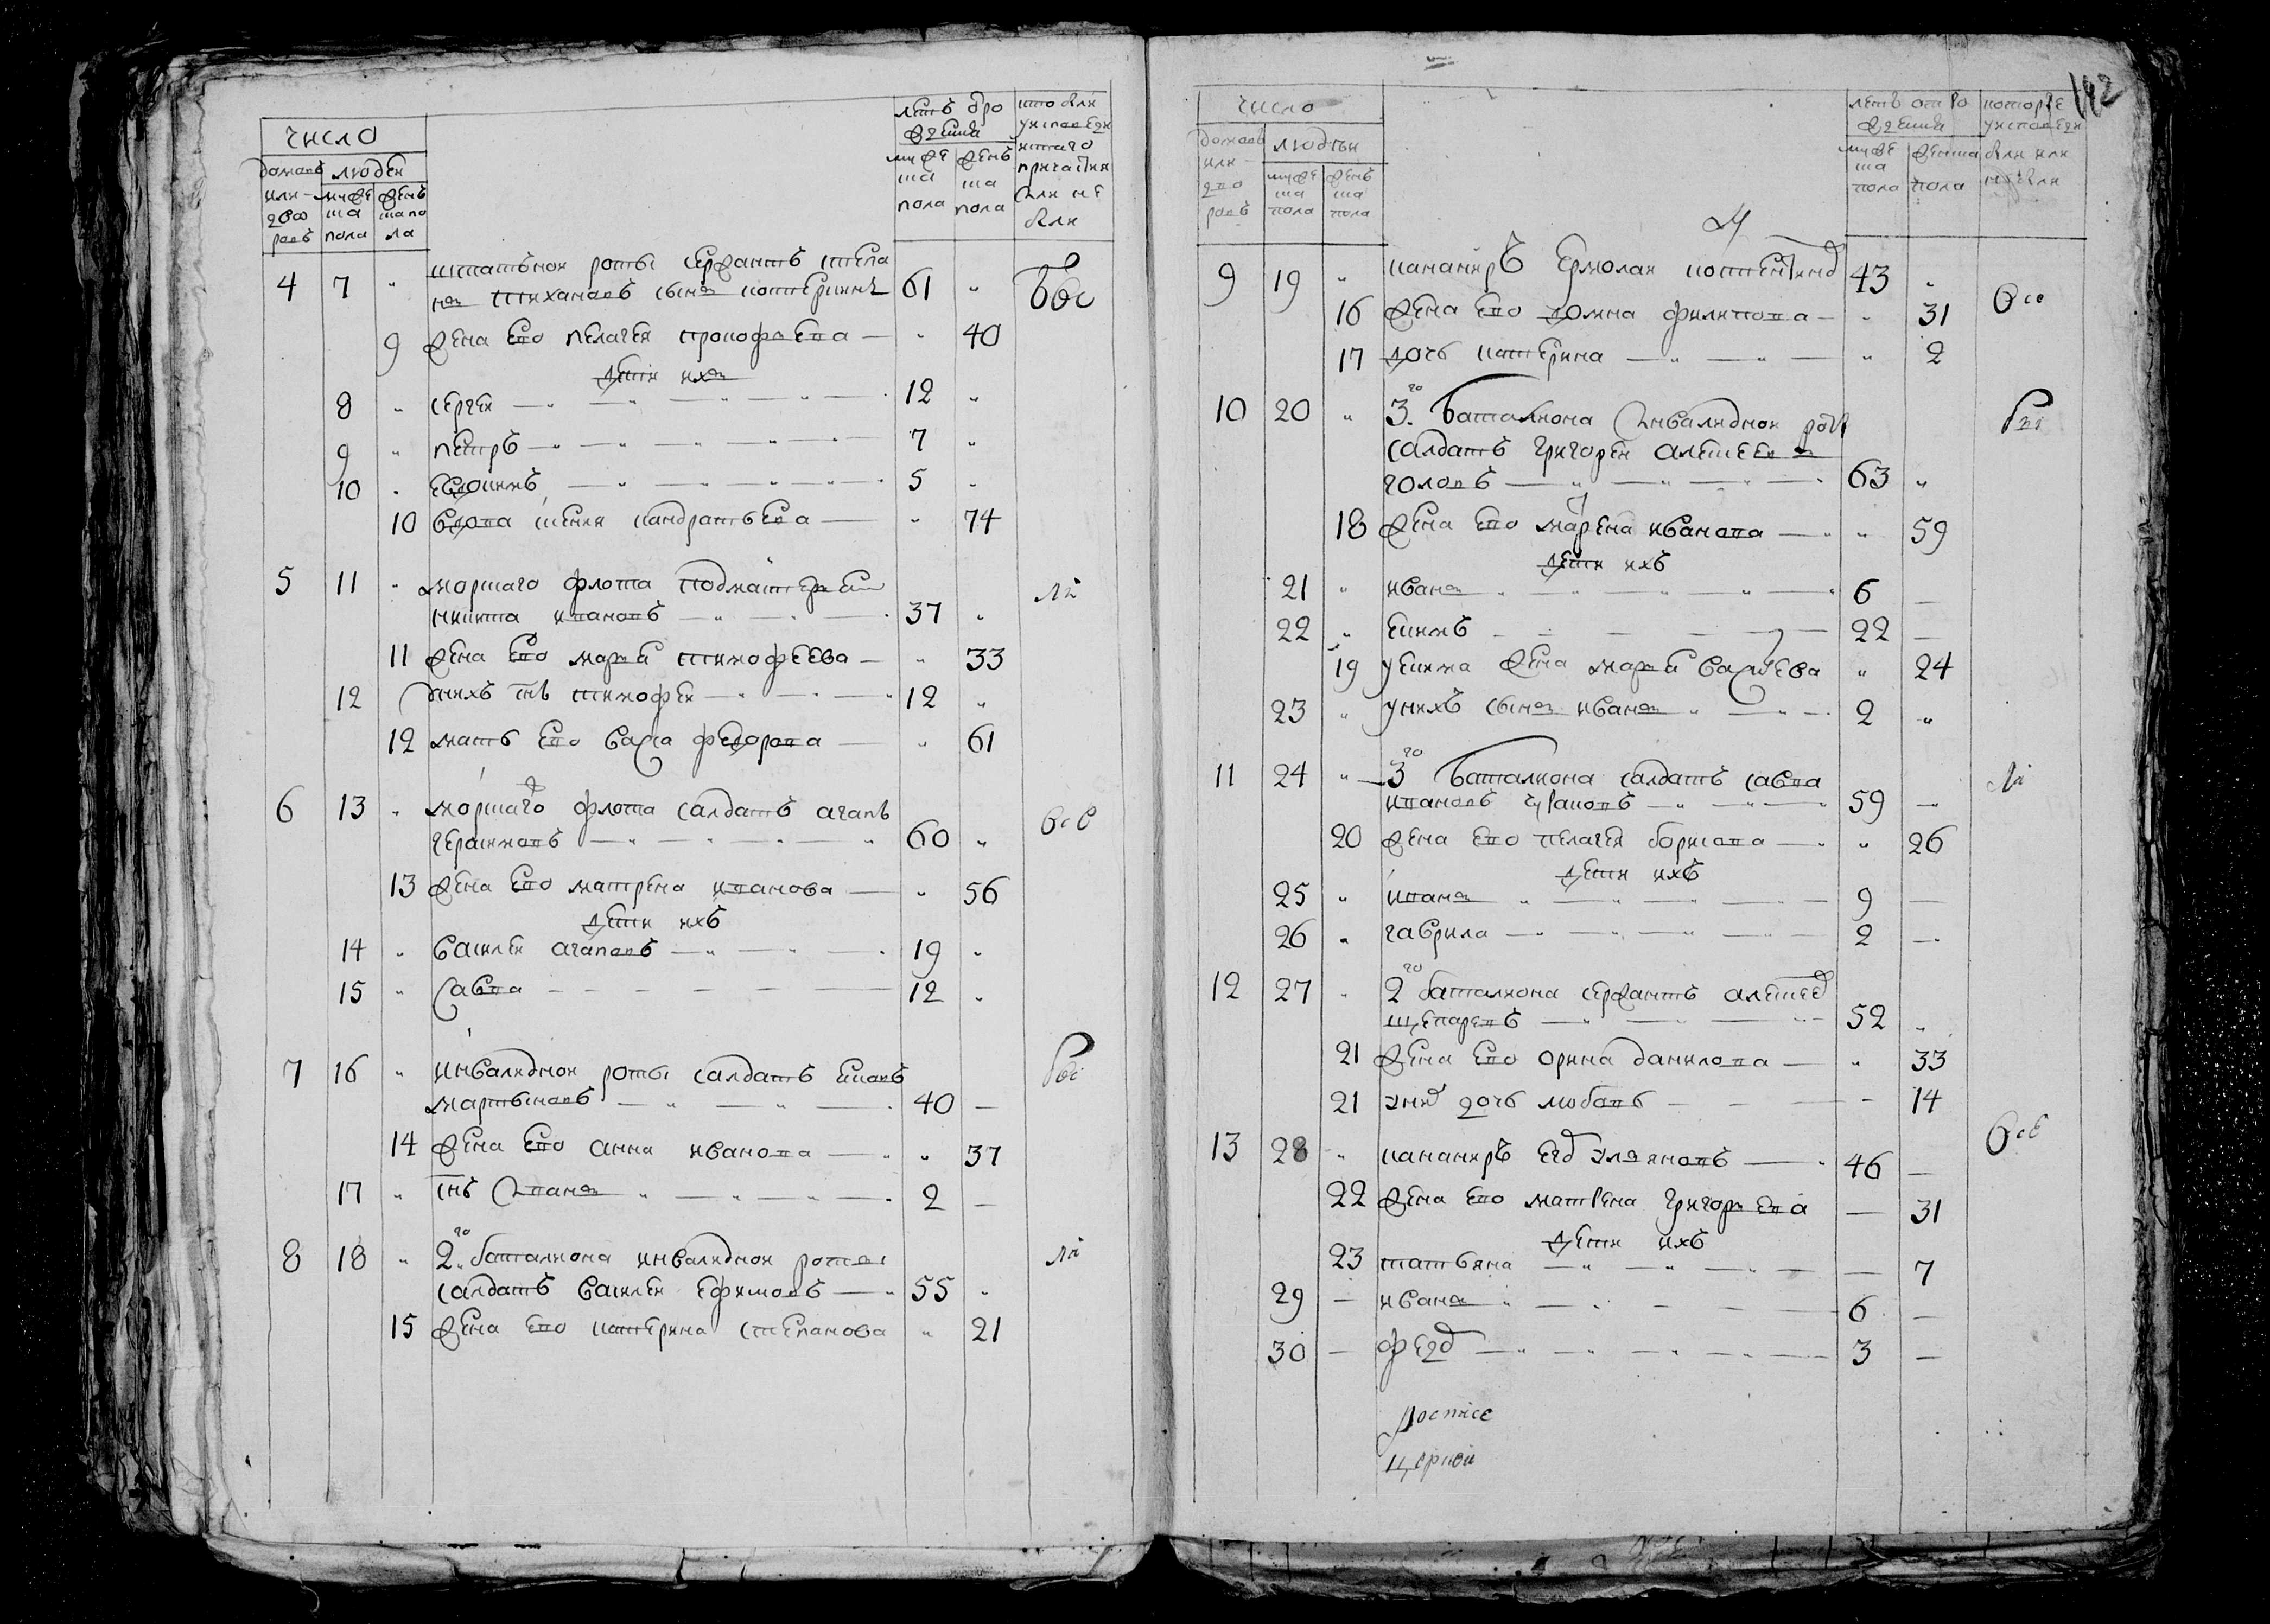 число
домовъ или дворовъ
людеи
мужеска пола
женска пола
летъ о рождения
мужеска пола
женска пола
кто были у исповеди и святаго причастия или не были
4 7 " штатънои роты сержантъ степа
нъ тихановъ сынъ 61 "
9 жена ево пелагея прокофьева — " 40
дети ихъ
8 " сергеи 12 "
9 " петръ 7 "
10 " евдокимъ 5 "
10 вдова кандратьева — " 74
5 11 " морскаго флота подмастерья
никита ивановъ 37 "
11 жена ево марья тимофеева — " 33
12 у нихъ снъ тимофеи 12 "
12 мать ево васса федорова — " 61
6 13 " морскаго флота салдатъ агапъ
герасимовъ 60 "
13 жена ево матрена иванова — " 56
дети ихъ
14 " василеи агаповъ 19 "
15 " савва 12 "
7 16 " инвалиднои роты салдатъ
мартыновъ 40 —
14 жена ево анна иванова — " 37
17 " снъ иванъ 2 —
8 18 " 2го баталиона инвалиднои роты
салдатъ василеи ефимовъ — 55 "
15 жена ево катерина степанова " 21
142
число
домовъ или дворовъ
людеи
мужеска пола
женска пола
летъ от рождения
мужеска пола
женска пола
которые у исповеди были или не были
9 19 " кананиръ ермолаи 43 "
16 жена ево домна филипова — " 31
17 дочь катерина " 2
10 20 " 3го баталиона инвалиднои роты
салдатъ григореи алексеевъ
головъ 63 "
18 жена ево марена иванова — " 59
дети ихъ
21 " иванъ 6 —
22 " екимъ 22 —
19 у екима жена марья васильева " 24
23 " у нихъ сынъ иванъ 2 "
11 24 " 3го баталиона салдатъ савва
ивановъ 59 —
20 жена ево пелагея борисова — " 26
дети ихъ
25 " иванъ 9 —
26 " гаврила 2 —
12 27 " 2го баталиона сержантъ алексеи
52 "
21 жена ево орина данилова — " 33
21 дочь любовь — 14
13 28 " кананиръ 46 —
22 жена ево матрена григорьева — 31
дети ихъ
23 татьяна — 7
29 — иванъ 6 —
30 — федоръ 3 —